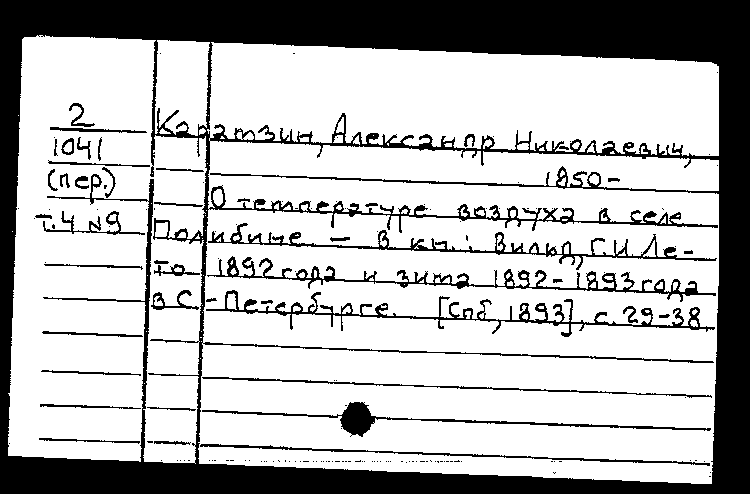 2
1041
(пер.)
т.4 №9
Каратзин, Александр Николаевич,
1850-
О температуре воздуха в селе
Полибине. - В кн.: Вильд, Г.И. Ле-
то 1892 года и зима 1892-1893 года
в С.-Петербурге. [Спб, 1893], с. 29-38.